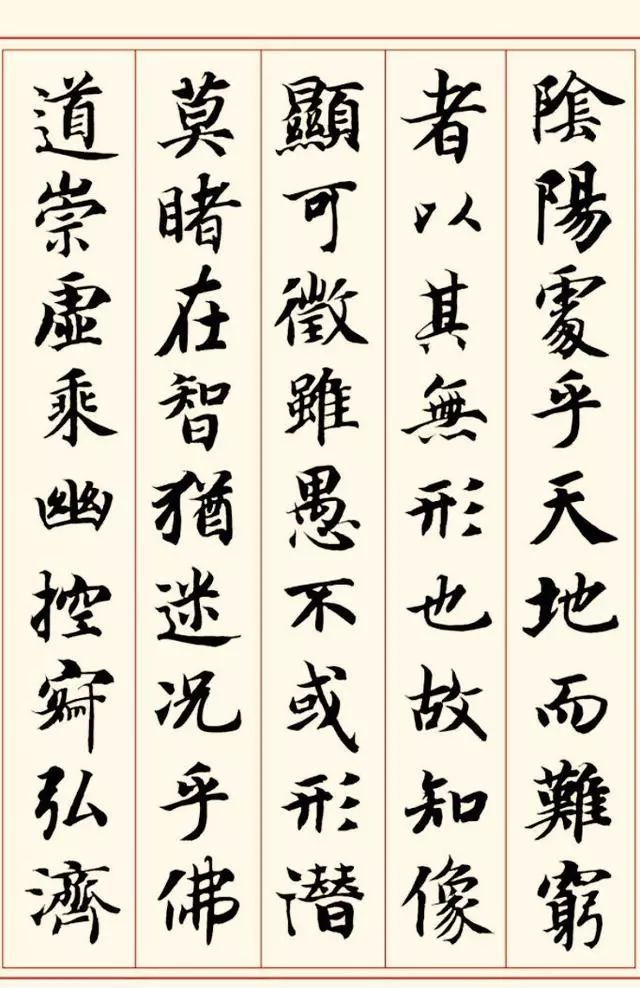 陰陽處乎天地而難窮
者以其無形也故知像
顯可徵雖愚不或形
潛莫睹在智猶迷況乎佛
道崇虛乘幽控寂弘濟